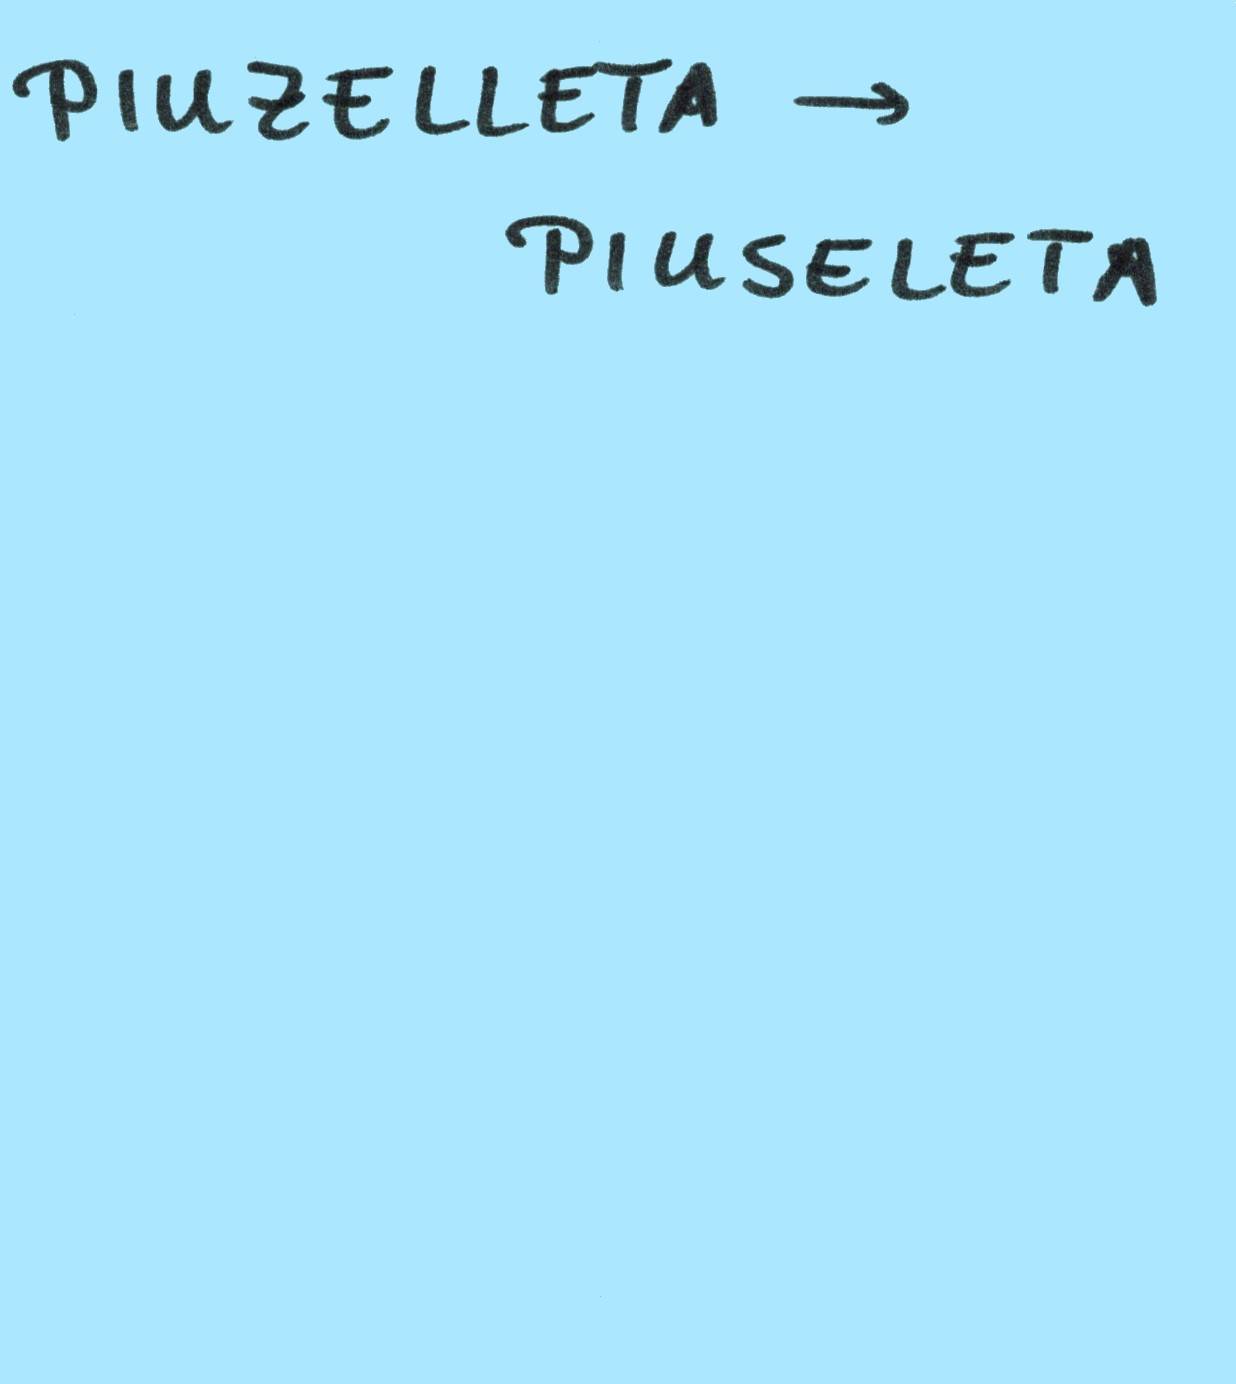 PIUZELLETA →
PIUSELETA